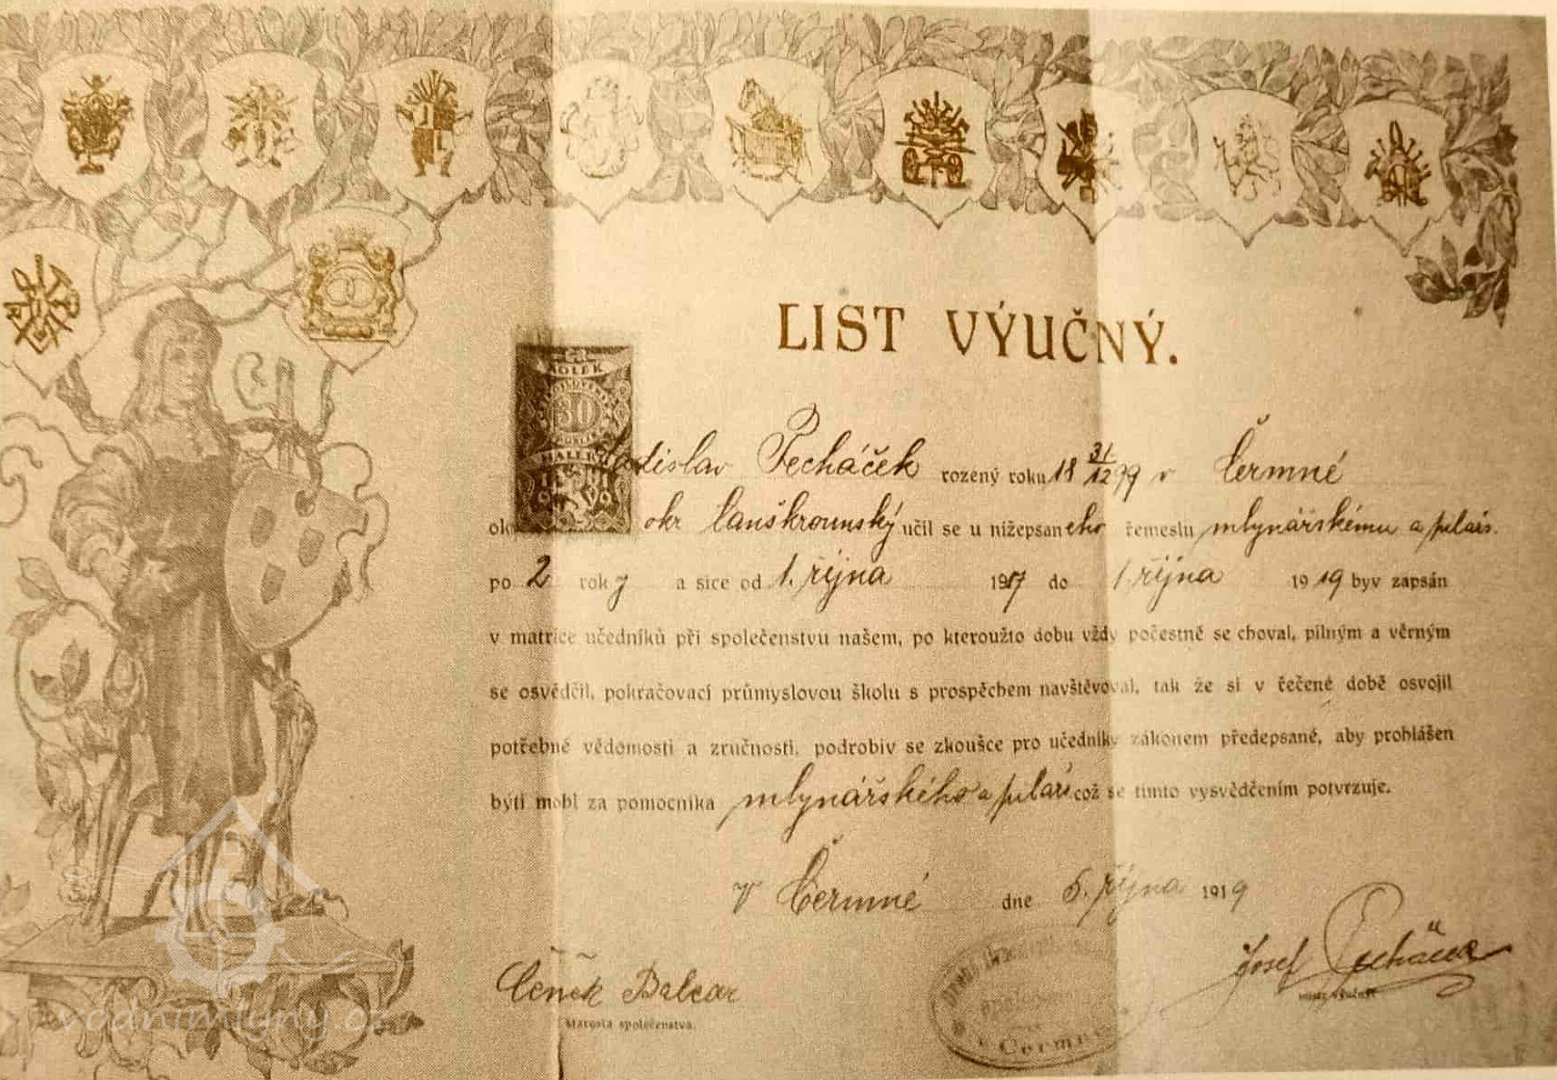 LIST VÝUČNÝ.
KOLEK
30
HALÉŘŮ
1919
Ladislav Pecháček rozený roku 18 31/12 99 v Čermné
okr Lanškrounský učil se u nížepsaného řemeslu mlynářskému a pilařs.
po 2 roky a sice od 1. října 1917 do 1. října 1919 byv zapsán
v matrice učedníků při společenstvu našem, po kteroužto dobu vždy počestně se choval, pilným a věrným
se osvědčil, pokračovací průmyslovou školu s prospěchem navštěvoval, tak že si v řečené době osvojil
potřebné vědomosti a zručnosti, podrobiv se zkoušce pro učedníky zákonem předepsané, aby prohlášen
býti mohl za pomocníka mlynářského a pilař což se tímto vysvědčením potvrzuje.
V Čermné dne 5. října 1919
Čeněk Balcar
starosta společenstva.
Josef Pecháček
mistr výučný
v Čermné
vodnimlyny.cz